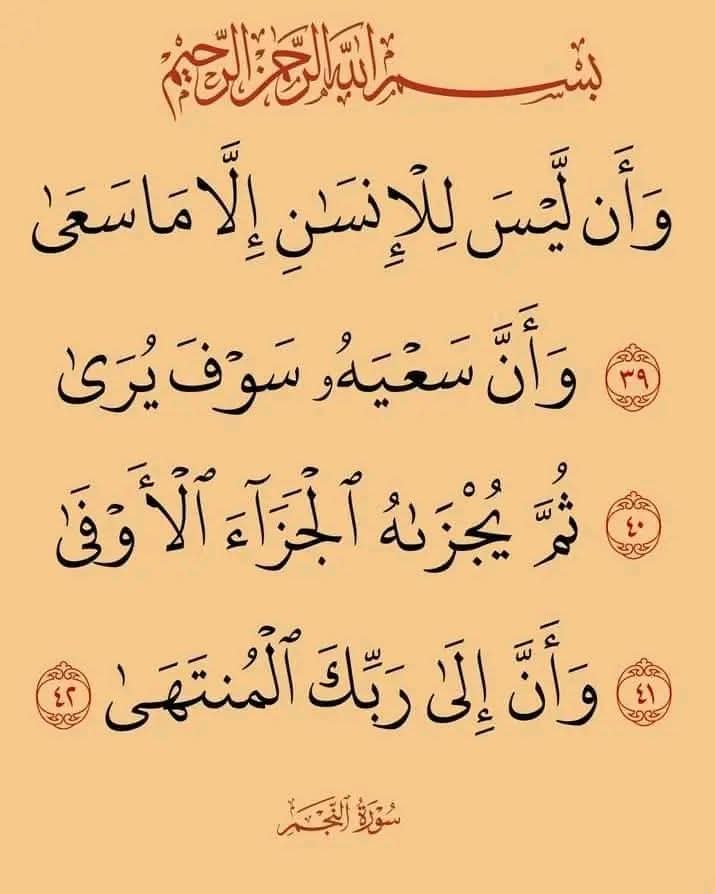 بِسْمِ اللَّهِ الرَّحْمَٰنِ الرَّحِيمِ
وَأَن لَّيْسَ لِلْإِنسَٰنِ إِلَّا مَا سَعَىٰ
٣٩ وَأَنَّ سَعْيَهُۥ سَوْفَ يُرَىٰ
٤٠ ثُمَّ يُجْزَىٰهُ ٱلْجَزَآءَ ٱلْأَوْفَىٰ
٤١ وَأَنَّ إِلَىٰ رَبِّكَ ٱلْمُنتَهَىٰ ٤٢
سُورَةُ النَّجْمِ